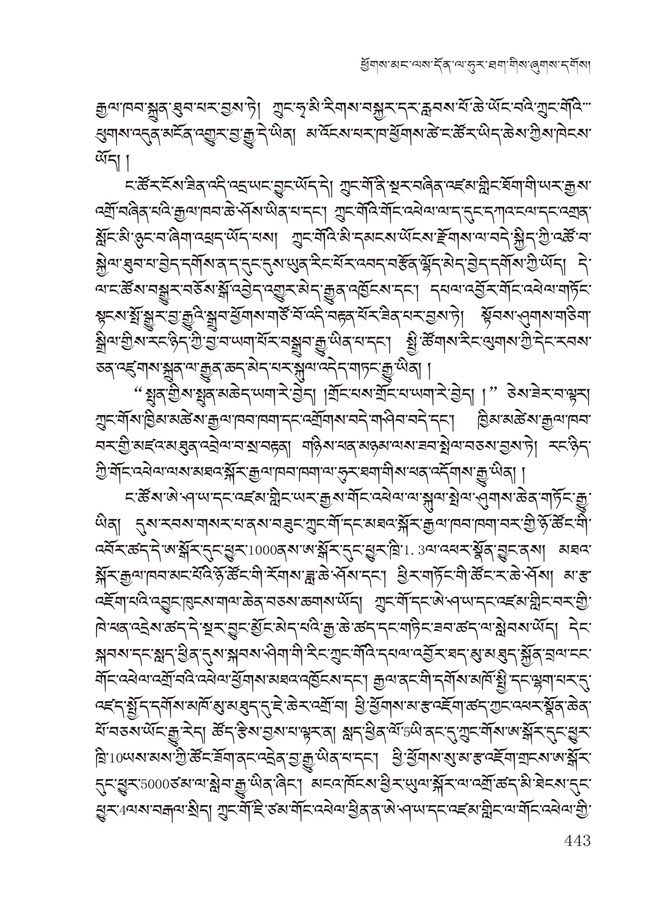 ཕྱོགས་མང་ལས་དོན་ལ་ཧུར་ཐག་གིས་ཞུགས་དགོས།
རྒྱལ་ཁབ་སྐྲུན་ཐུབ་པར་བྱས་ཏེ། ཀྲུང་ཧྭ་མི་རིགས་བསྐྱར་དར་རླབས་པོ་ཆེ་ཡོང་བའི་ཀྲུང་གོའི་
ཕུགས་འདུན་མངོན་འགྱུར་བྱ་རྒྱུ་དེ་ཡིན། མ་འོངས་པར་ཁ་ཕྱོགས་ཚེ་ང་ཚོར་ཡིད་ཆེས་ཀྱིས་ཁེངས་
ཡོད། །
ང་ཚོར་ངོས་ཟིན་འདི་འདྲ་ཡང་བྱུང་ཡོད་དེ། ཀྲུང་གོ་ནི་སྔར་བཞིན་འཛམ་གླིང་ཐོག་གི་ཡར་རྒྱས་
འགྲོ་བཞིན་པའི་རྒྱལ་ཁབ་ཆེ་ཤོས་ཡིན་པ་དང་། ཀྲུང་གོའི་གོང་འཕེལ་ལ་ད་དུང་དཀའ་ངལ་དང་འགྲན་
སློང་མི་ཉུང་བ་ཞིག་འཕྲད་ཡོད་པས། ཀྲུང་གོའི་མི་དམངས་ཡོངས་རྫོགས་ལ་བདེ་སྐྱིད་ཀྱི་འཚོ་བ་
སྐྱེལ་ཐུབ་པ་བྱེད་དགོས་ན་ད་དུང་དུས་ཡུན་རིང་པོར་འབད་བརྩོན་ལྷོད་མེད་བྱེད་དགོས་ཀྱི་ཡོད། དེ་
ལ་ང་ཚོས་བསྒྱུར་བཅོས་སྒོ་འབྱེད་འགྱུར་མེད་རྒྱུན་འཁྱོངས་དང་། དཔལ་འབྱོར་གོང་འཕེལ་གཏོང་
སྟངས་སྤོ་སྒྱུར་བྱ་རྒྱུའི་སྒྲུབ་ཕྱོགས་གཙོ་བོ་འདི་བརྟན་པོར་ཟིན་པར་བྱས་ཏེ། སྟོབས་ཤུགས་གཅིག་
སྒྲིལ་གྱིས་རང་ཉིད་ཀྱི་བྱ་བ་ཡག་པོར་བསྒྲུབ་རྒྱུ་ཡིན་པ་དང་། སྤྱི་ཚོགས་རིང་ལུགས་ཀྱི་དེང་རབས་
ཅན་འཛུགས་སྐྲུན་ལ་རྒྱུན་ཆད་མེད་པར་སྐུལ་འདེད་གཏང་རྒྱུ་ཡིན། །
“སྤུན་གྱིས་སྤུན་མཆེད་ཡག་རེ་བྱེད། །གྲོང་པས་གྲོང་པ་ཡག་རེ་བྱེད། །” ཅེས་ཟེར་བ་ལྟར།
ཀྲུང་གོས་ཁྱིམ་མཚེས་རྒྱལ་ཁབ་ཁག་དང་འགྲོགས་བདེ་གཤིབ་བདེ་དང་། ཁྱིམ་མཚེས་རྒྱལ་ཁབ་
བར་གྱི་མཛའ་མཐུན་འབྲེལ་བ་སྲ་བརྟན། གཉིས་ཕན་མཉམ་ལས་ཟབ་སྤེལ་བཅས་བྱས་ཏེ། རང་ཉིད་
ཀྱི་གོང་འཕེལ་ལས་མཐའ་སྐོར་རྒྱལ་ཁབ་ཁག་ལ་ཧུར་ཐག་གིས་ཕན་འདོགས་རྒྱུ་ཡིན། །
ང་ཚོས་ཨེ་ཤ་ཡ་དང་འཛམ་གླིང་ཡར་རྒྱས་གོང་འཕེལ་ལ་སྐུལ་སྤེལ་ཤུགས་ཆེན་གཏོང་རྒྱུ་
ཡིན། དུས་རབས་གསར་པ་ནས་བཟུང་ཀྲུང་གོ་དང་མཐའ་སྐོར་རྒྱལ་ཁབ་ཁག་བར་གྱི་ཉོ་ཚོང་གི་
འབོར་ཚད་དེ་ཨ་སྒོར་དུང་ཕྱུར་1000ནས་ཨ་སྒོར་དུང་ཕྱུར་ཁྲི་1.3ལ་འཕར་སྣོན་བྱུང་ནས། མཐའ་
སྐོར་རྒྱལ་ཁབ་མང་པོའི་ཉོ་ཚོང་གི་རོགས་ཟླ་ཆེ་ཤོས་དང་། ཕྱིར་གཏོང་གི་ཚོང་ར་ཆེ་ཤོས། མ་རྩ་
འཇོག་པའི་འབྱུང་ཁུངས་གལ་ཆེན་བཅས་ཆགས་ཡོད། ཀྲུང་གོ་དང་ཨེ་ཤ་ཡ་དང་འཛམ་གླིང་བར་གྱི་
ཁེ་ཕན་འདྲེས་ཚད་དེ་སྔར་བྱུང་མྱོང་མེད་པའི་རྒྱ་ཆེ་ཚད་དང་གཏིང་ཟབ་ཚད་ལ་སླེབས་ཡོད། དེང་
སྐབས་དང་སླད་ཕྱིན་དུས་སྐབས་ཤིག་གི་རིང་ཀྲུང་གོའི་དཔལ་འབྱོར་ཐད་མུ་མཐུད་སྐྱོན་བྲལ་ངང་
གོང་འཕེལ་འགྲོ་བའི་འཕེལ་ཕྱོགས་མཐའ་འཁྱོངས་དང་། རྒྱལ་ནང་གི་དགོས་མཁོ་སྤྱི་དང་ལྷག་པར་དུ་
འཛད་སྤྱོད་དགོས་མཁོ་མུ་མཐུད་དུ་ཇེ་ཆེར་འགྲོ་བ། ཕྱི་ཕྱོགས་མ་རྩ་འཇོག་ཚད་ཀྱང་འཕར་སྣོན་ཆེན་
པོ་བཅས་ཡོང་རྒྱུ་རེད། ཚོད་རྩིས་བྱས་པ་ལྟར་ན། སླད་ཕྱིན་ལོ་5ཡི་ནང་དུ་ཀྲུང་གོས་ཨ་སྒོར་དུང་ཕྱུར་
ཁྲི་10ཡས་མས་ཀྱི་ཚོང་ཟོག་ནང་འདྲེན་བྱ་རྒྱུ་ཡིན་པ་དང་། ཕྱི་ཕྱོགས་སུ་མ་རྩ་འཇོག་གྲངས་ཨ་སྒོར་
དུང་ཕྱུར་5000ཙམ་ལ་སླེབ་རྒྱུ་ཡིན་ཞིང་། མངའ་ཁོངས་ཕྱིར་ཡུལ་སྐོར་ལ་འགྲོ་ཚད་མི་ཐེངས་དུང་
ཕྱུར་4ལས་བརྒལ་སྲིད། ཀྲུང་གོ་ཇི་ཙམ་གོང་འཕེལ་ཕྱིན་ན་ཨེ་ཤ་ཡ་དང་འཛམ་གླིང་ལ་གོང་འཕེལ་གྱི་
443